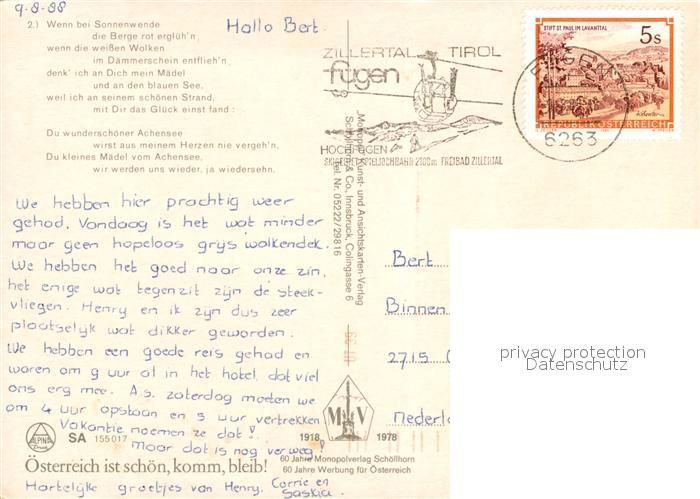 9-8-88
Hallo Bert.
2.) Wenn bei Sonnenwende
die Berge rot erglüh'n,
wenn die weißen Wolken
im Dämmerschein entflieh'n,
denk' ich an Dich mein Mädel
und an den blauen See,
weil ich an seinem schönen Strand,
mit Dir das Glück einst fand:
Du wunderschöner Achensee
wirst aus meinem Herzen nie vergeh'n,
Du kleines Mädel vom Achensee,
wir werden uns wieder, ja wiedersehn.
ZILLERTAL TIROL
fügen
HOCHFÜGEN
SPIELJOCHBAHN 2100m FREIBAD ZILLERTAL
STIFT ST. PAUL IM LAVANTTAL
5s
REPUBLIK ÖSTERREICH
6263
We hebben hier prachtig weer
gehad. Vandaag is het wat minder
maar geen hopeloos grijs wolkendek.
We hebben het goed naar onze zin,
het enige wat tegenzit zijn de steek-
vliegen. Henry en ik zijn dus zeer
plaatselijk wat dikker geworden.
We hebben een goede reis gehad en
waren om 9 uur al in het hotel, dat viel
ons erg mee. A.s. zaterdag moeten we
om 4 uur opstaan en 5 uur vertrekken
Vakantie noemen ze dat!
Maar dat is nog ver weg!
Hartelijke groetjes van Henry, Corrie en
Saskia.
„Monopol" Kunst- und Ansichtskarten-Verlag
Schöllhorn & Co., Innsbruck, Colingasse 6
Tel. Nr. 05222/29816
Bert
Binnen
2715
Nederla
privacy protection
Datenschutz
ALPINA
Druck
SA 155017
M V
1918 1978
60 Jahre Monopolverlag Schöllhorn
60 Jahre Werbung für Österreich
Österreich ist schön, komm, bleib!